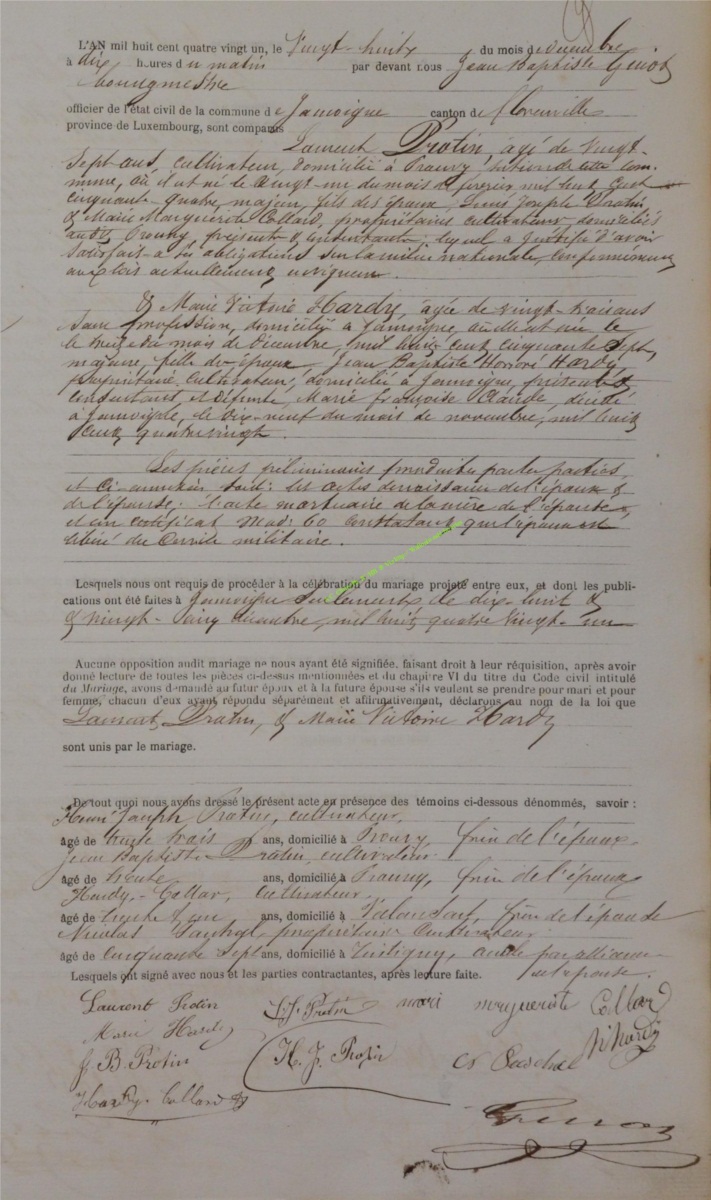 L'AN mil huit cent quatre vingt un, le Vingt-huit du mois de
à dix heures du matin par devant nous Jean Baptiste
bourgmestre
officier de l'état civil de la commune de Jamoigne canton de Florenville
province de Luxembourg, sont comparus
Laurent Protin, âgé de vingt-
sept ans, cultivateur, domicilié à Prouvy, section de cette com-
mune, où il est né le vingt-un du mois de février mil huit cent
cinquante quatre, majeur, fils des époux Joseph Protin
& Marie Marguerite Collard, propriétaires cultivateurs domiciliés
audit Prouvy, présents & consentants, lequel a justifié d'avoir
satisfait à ses obligations sur la milice nationale, conformément
aux lois actuellement en vigueur.
& Marie Victoire Hardy, âgée de vingt-trois ans
sans profession, domiciliée à Jamoigne, où elle est née le
le du mois de Décembre, mil huit cent cinquante sept,
majeure, fille des époux Jean Baptiste Honoré Hardy
propriétaire cultivateur, domicilié à Jamoigne, présent &
consentant, et défunte Marie Françoise Claude, décédée
à Jamoigne, le dix-neuf du mois de novembre, mil huit
cent quatre vingt.
Les pièces préliminaires produites par les parties
et ci-annexées sont: les actes de naissance de l'époux &
de l'épouse; l'acte mortuaire de la mère de l'épouse &
et un certificat Mod: 60 constatant que l'époux est
libéré du service militaire.
Lesquels nous ont requis de procéder à la célébration du mariage projeté entre eux, et dont les publi-
cations ont été faites à Jamoigne seulement le dix-huit &
& vingt- mil huit quatre vingt-un
Aucune opposition audit mariage ne nous ayant été signifiée, faisant droit à leur réquisition, après avoir
donné lecture de toutes les pièces ci-dessus mentionnées et du chapitre VI du titre du Code civil intitulé
du Mariage, avons demandé au futur époux et à la future épouse s'ils veulent se prendre pour mari et pour
femme, chacun d'eux ayant répondu séparément et affirmativement, déclarons au nom de la loi que
Laurent Protin, & Marie Victoire Hardy
sont unis par le mariage.
De tout quoi nous avons dressé le présent acte en présence des témoins ci-dessous dénommés, savoir :
Henri Joseph Protin, cultivateur,
âgé de trente trois ans, domicilié à Prouvy, frère de l'époux.
Jean Baptiste Protin, cultivateur
âgé de trente ans, domicilié à Prouvy, frère de l'époux
Hardy-Collard, cultivateur
âgé de trente un ans, domicilié à Valansart, frère de l'épouse
Nicolas propriétaire cultivateur
âgé de cinquante sept ans, domicilié à Tintigny, oncle par alliance
Lesquels ont signé avec nous et les parties contractantes, après lecture faite. de l'épouse.
Laurent Protin L. J. Protin mari marguerite Collard
Marie Hardy
J B Protin H. J. Protin Hardy
Hardy-Collard